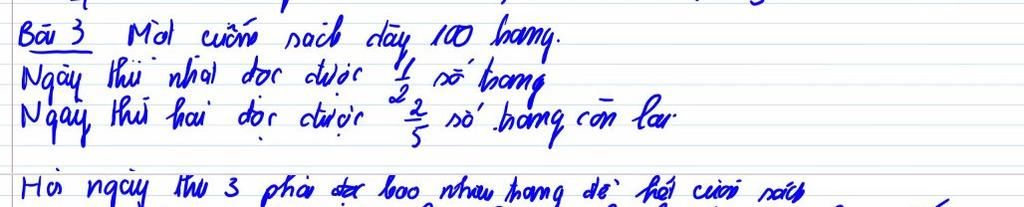 Bài 3 Một cuốn sách dày 100 trang.
Ngày thứ nhất đọc được 1/2 số trang
Ngày thứ hai đọc được 2/5 số trang còn lại.
Hỏi ngày thứ 3 phải đọc bao nhiêu trang để hết cuốn sách